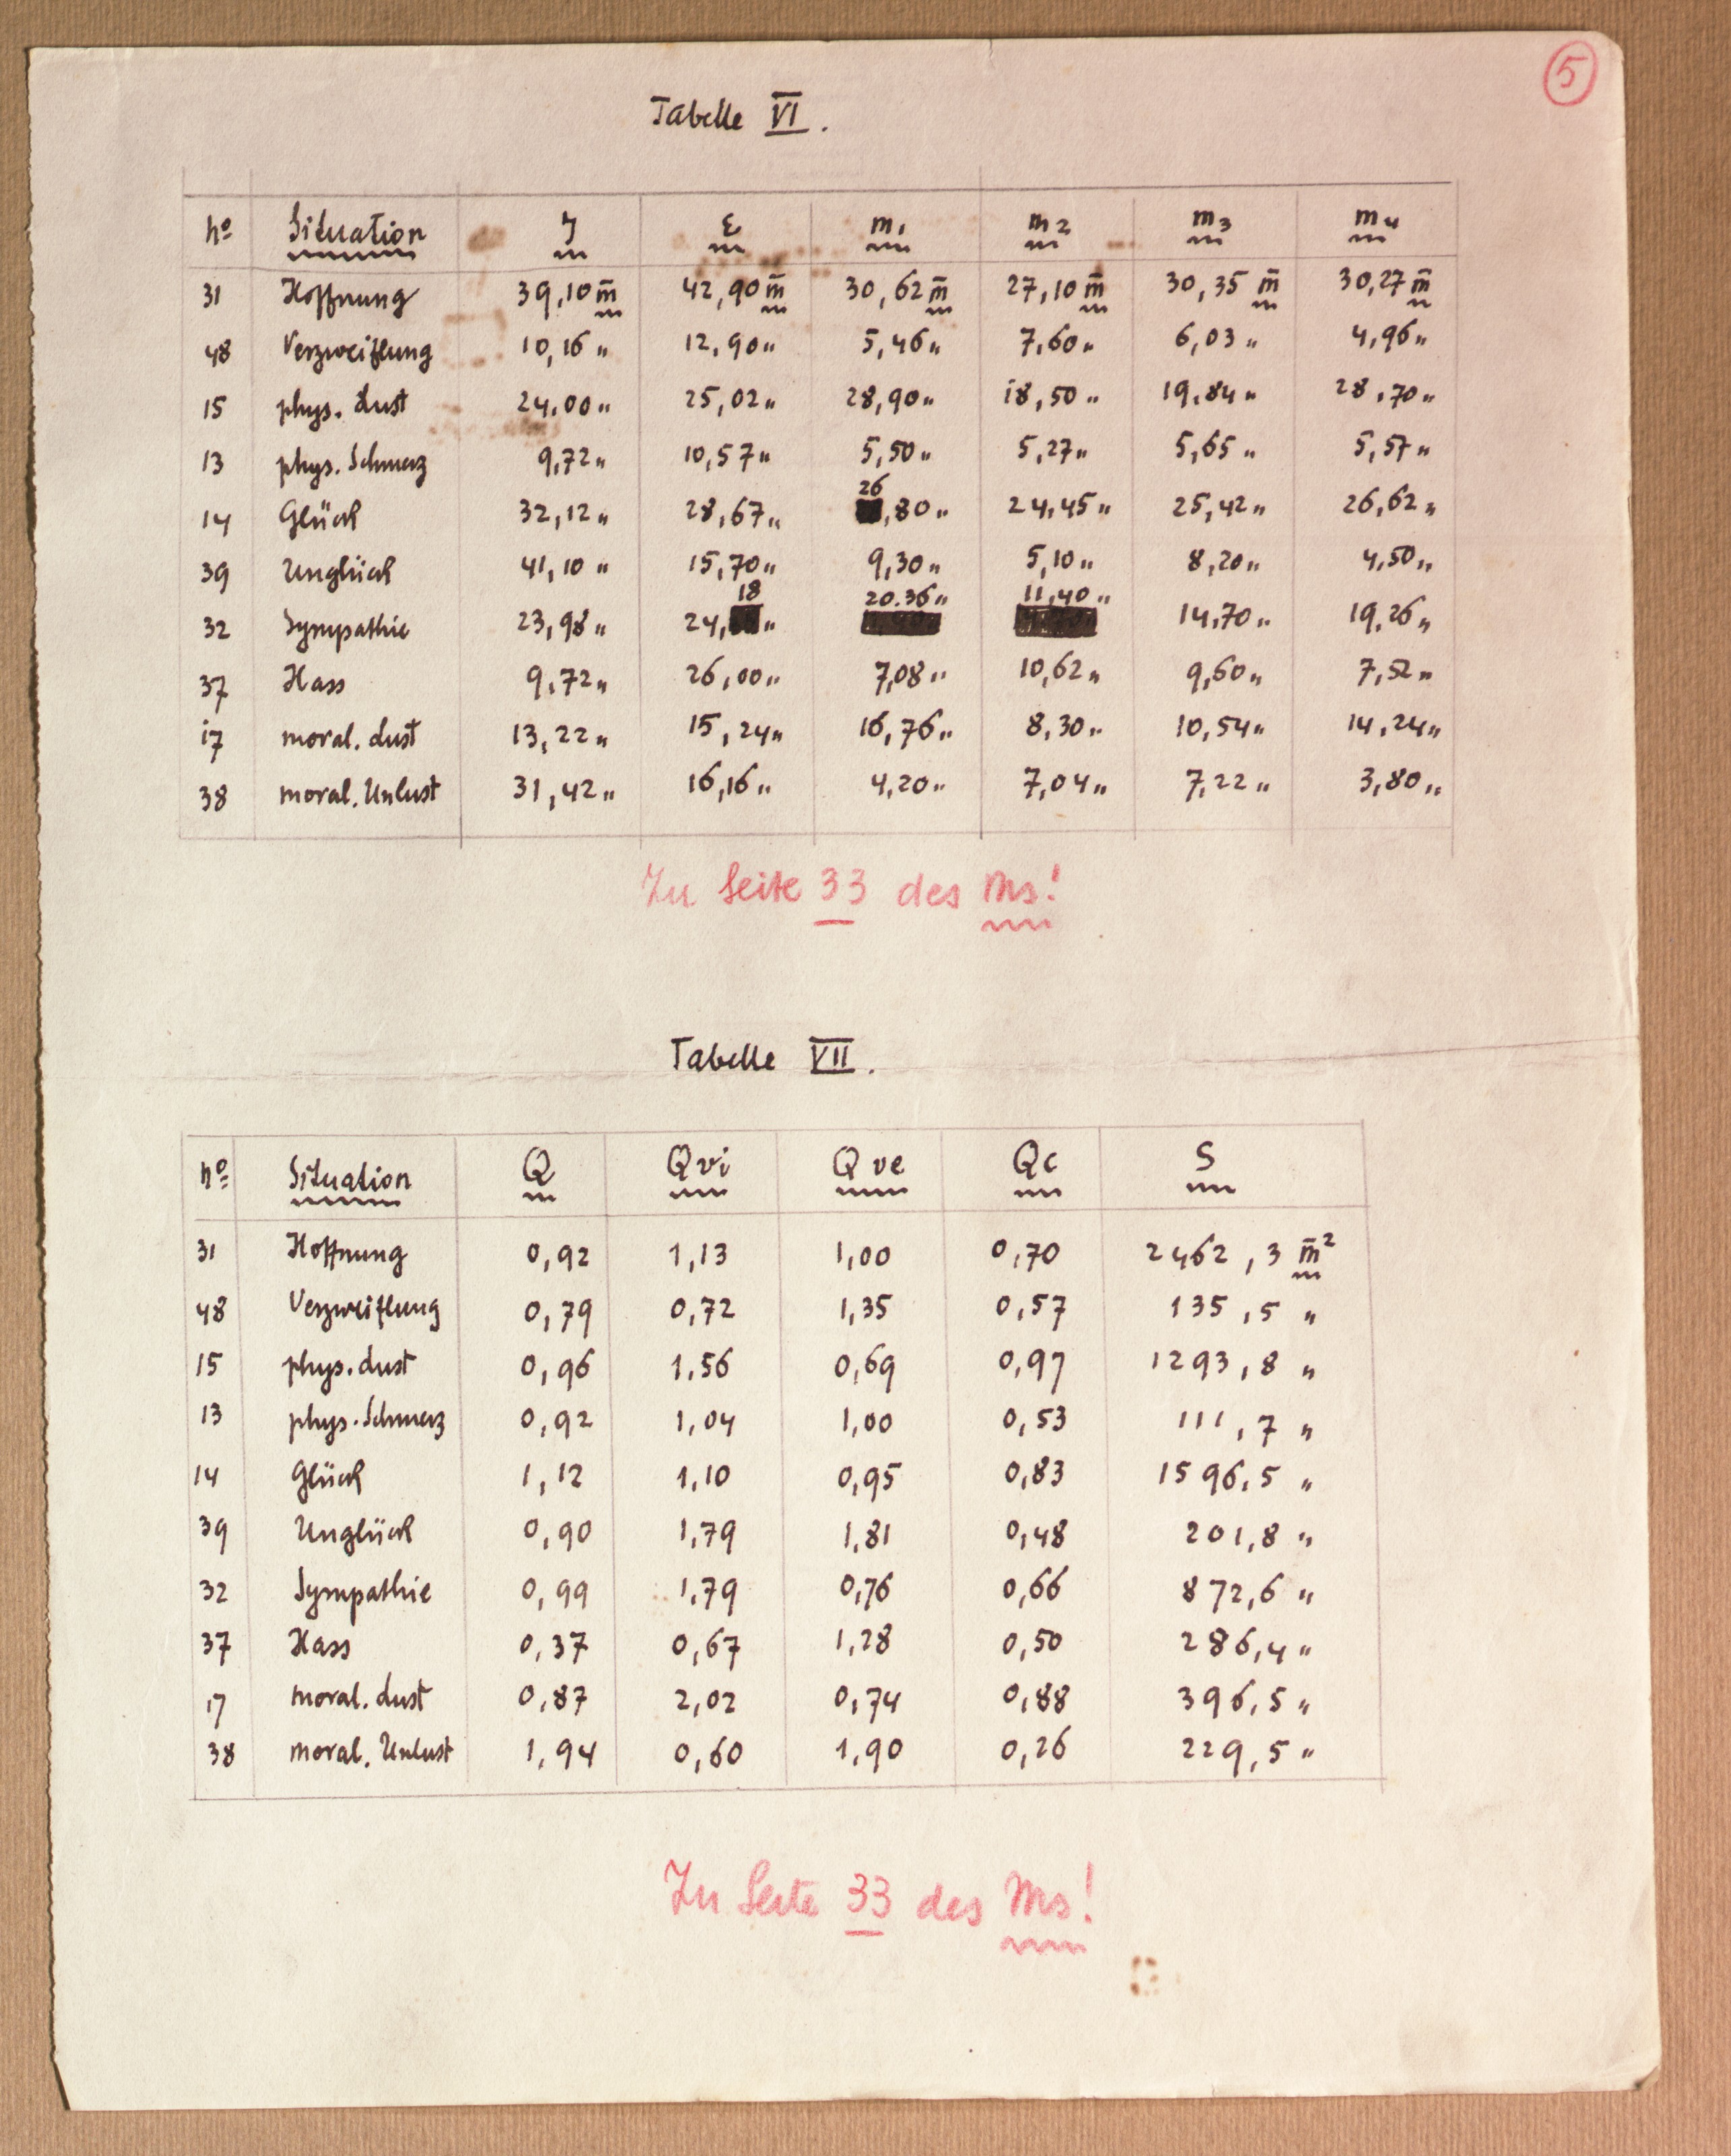 5
Tabelle VI.
No Situation J E m1 m2 m3 m4
31 Hoffnung 39,10 m 42,90 m 30,62 m 27,10 m 30,35 m 30,27 m
48 Verzweiflung 10,16 " 12,90 " 5,46 " 7,60 " 6,03 " 4,96 "
15 phys. Lust 24,00 " 25,02 " 28,90 " 18,50 " 19,84 " 28,70 "
13 phys. Schmerz 9,72 " 10,57 " 5,50 " 5,27 " 5,65 " 5,57 "
14 Glück 32,12 " 28,67 " 26,80 " 24,45 " 25,42 " 26,62 "
39 Unglück 41,10 " 15,70 " 9,30 " 5,10 " 8,20 " 4,50 "
32 Sympathie 23,98 " 24,18 " 20.36 " 11,40 " 14,70 " 19,26 "
37 Hass 9,72 " 26,00 " 7,08 " 10,62 " 9,60 " 7,52 "
17 moral. Lust 13,22 " 15,24 " 16,76 " 8,30 " 10,54 " 14,24 "
38 moral. Unlust 31,42 " 16,16 " 4,20 " 7,04 " 7,22 " 3,80 "
Zu Seite 33 des Ms!
Tabelle VII.
No Situation Q Qvi Qve Qc S
31 Hoffnung 0,92 1,13 1,00 0,70 2462,3 m²
48 Verzweiflung 0,79 0,72 1,35 0,57 135,5 "
15 phys. Lust 0,96 1,56 0,69 0,97 1293,8 "
13 phys. Schmerz 0,92 1,04 1,00 0,53 111,7 "
14 Glück 1,12 1,10 0,95 0,83 1596,5 "
39 Unglück 0,90 1,79 1,81 0,48 201,8 "
32 Sympathie 0,99 1,79 0,76 0,66 872,6 "
37 Hass 0,37 0,67 1,28 0,50 286,4 "
17 moral. Lust 0,87 2,02 0,74 0,88 396,5 "
38 moral. Unlust 1,94 0,60 1,90 0,26 229,5 "
Zu Seite 33 des Ms!